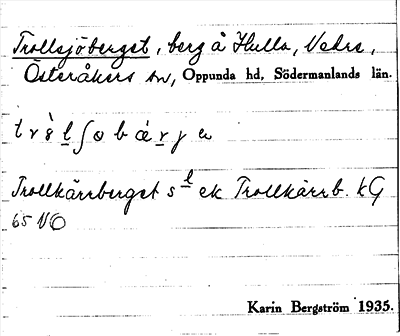 Trollsjöberget, berg å Hulla, Nedre,
Österåkers sn, Oppunda hd, Södermanlands län.
Trollkärrberget s ek Trollkärrb. kG
65 NO
Karin Bergström 1935.